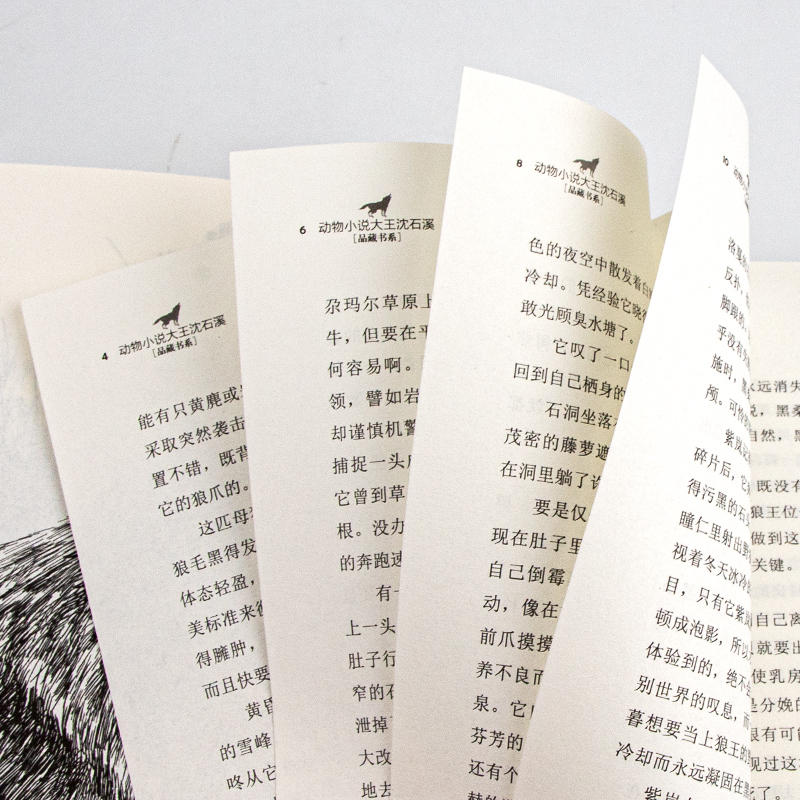 4 动物小说大王沈石溪
[品藏书系]
能有只黄麂或
采取突然袭击
置不错，既背
它的狼爪的。
这匹母
狼毛黑得发
体态轻盈，
美标准来衡
得臃肿，
而且快要
黄昏
的雪峰
咚从它
6 动物小说大王沈石溪
[品藏书系]
尕玛尔草原上
牛，但要在平
何容易啊。
领，譬如岩
却谨慎机警
捕捉一头
它曾到草
根。没办
的奔跑速
有一
上一头
肚子行
窄的石
泄掉
大改
地去
8 动物小说大王沈石溪
[品藏书系]
色的夜空中散发着
冷却。凭经验它晓得
敢光顾臭水塘了。
它叹了一口
回到自己栖身的
石洞坐落
茂密的藤萝遮
在洞里躺了许
要是仅
现在肚子里
自己倒霉
动，像在
前爪摸摸
养不良而
泉。它
芬芳的
还有个
10 动物小说大王沈
反扑，
脚跟的
乎没有
施时，
颅。可怜
紫岚
碎片后，它
得污黑的石
瞳仁里射出
视着冬天冰冷
目，只有它紫岚
顿成泡影，所以
体验到的，绝不
别世界的叹息，而
暮想要当上狼王的
冷却而永远凝固在黑
紫岚
永远消失
说，黑桑
自然，黑
既没有
狼王位
做到这
关键。
自己离
就要出
使乳房
是分娩的
很有可能
见过这
死了。